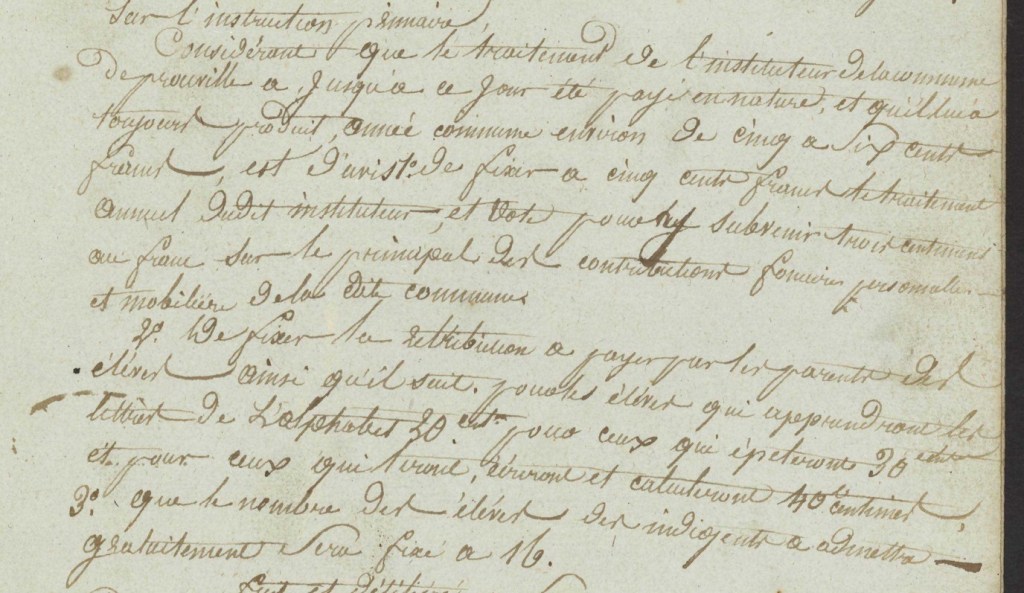 sur l'instruction primaire,
Considérant que le traitement de l'instituteur de la commune
De prouville a, jusqu'à ce jour été payé en nature, et qu'il lui a
toujours produit, année commune environ de cinq a six cents
francs, est d'avis 1.o de fixer a cinq cents francs le traitement
annuel dudit instituteur, et vote pour y subvenir trois centimes
au franc sur le principal des contributions foncieres personnelles
et mobilière de la dite commune.
2.o De fixer la rétribution a payer par les parents des
élèves ainsi qu'il suit. pour les élèves qui apprendront les
lettres de l'alphabet 20 cent. pour ceux qui épeleront 30 cent.
et pour ceux qui liront, écriront et calculeront 40 centimes,
3.o que le nombre des élèves des indigents a admettre
gratuitement sera fixé a 16.
fait et délibéré